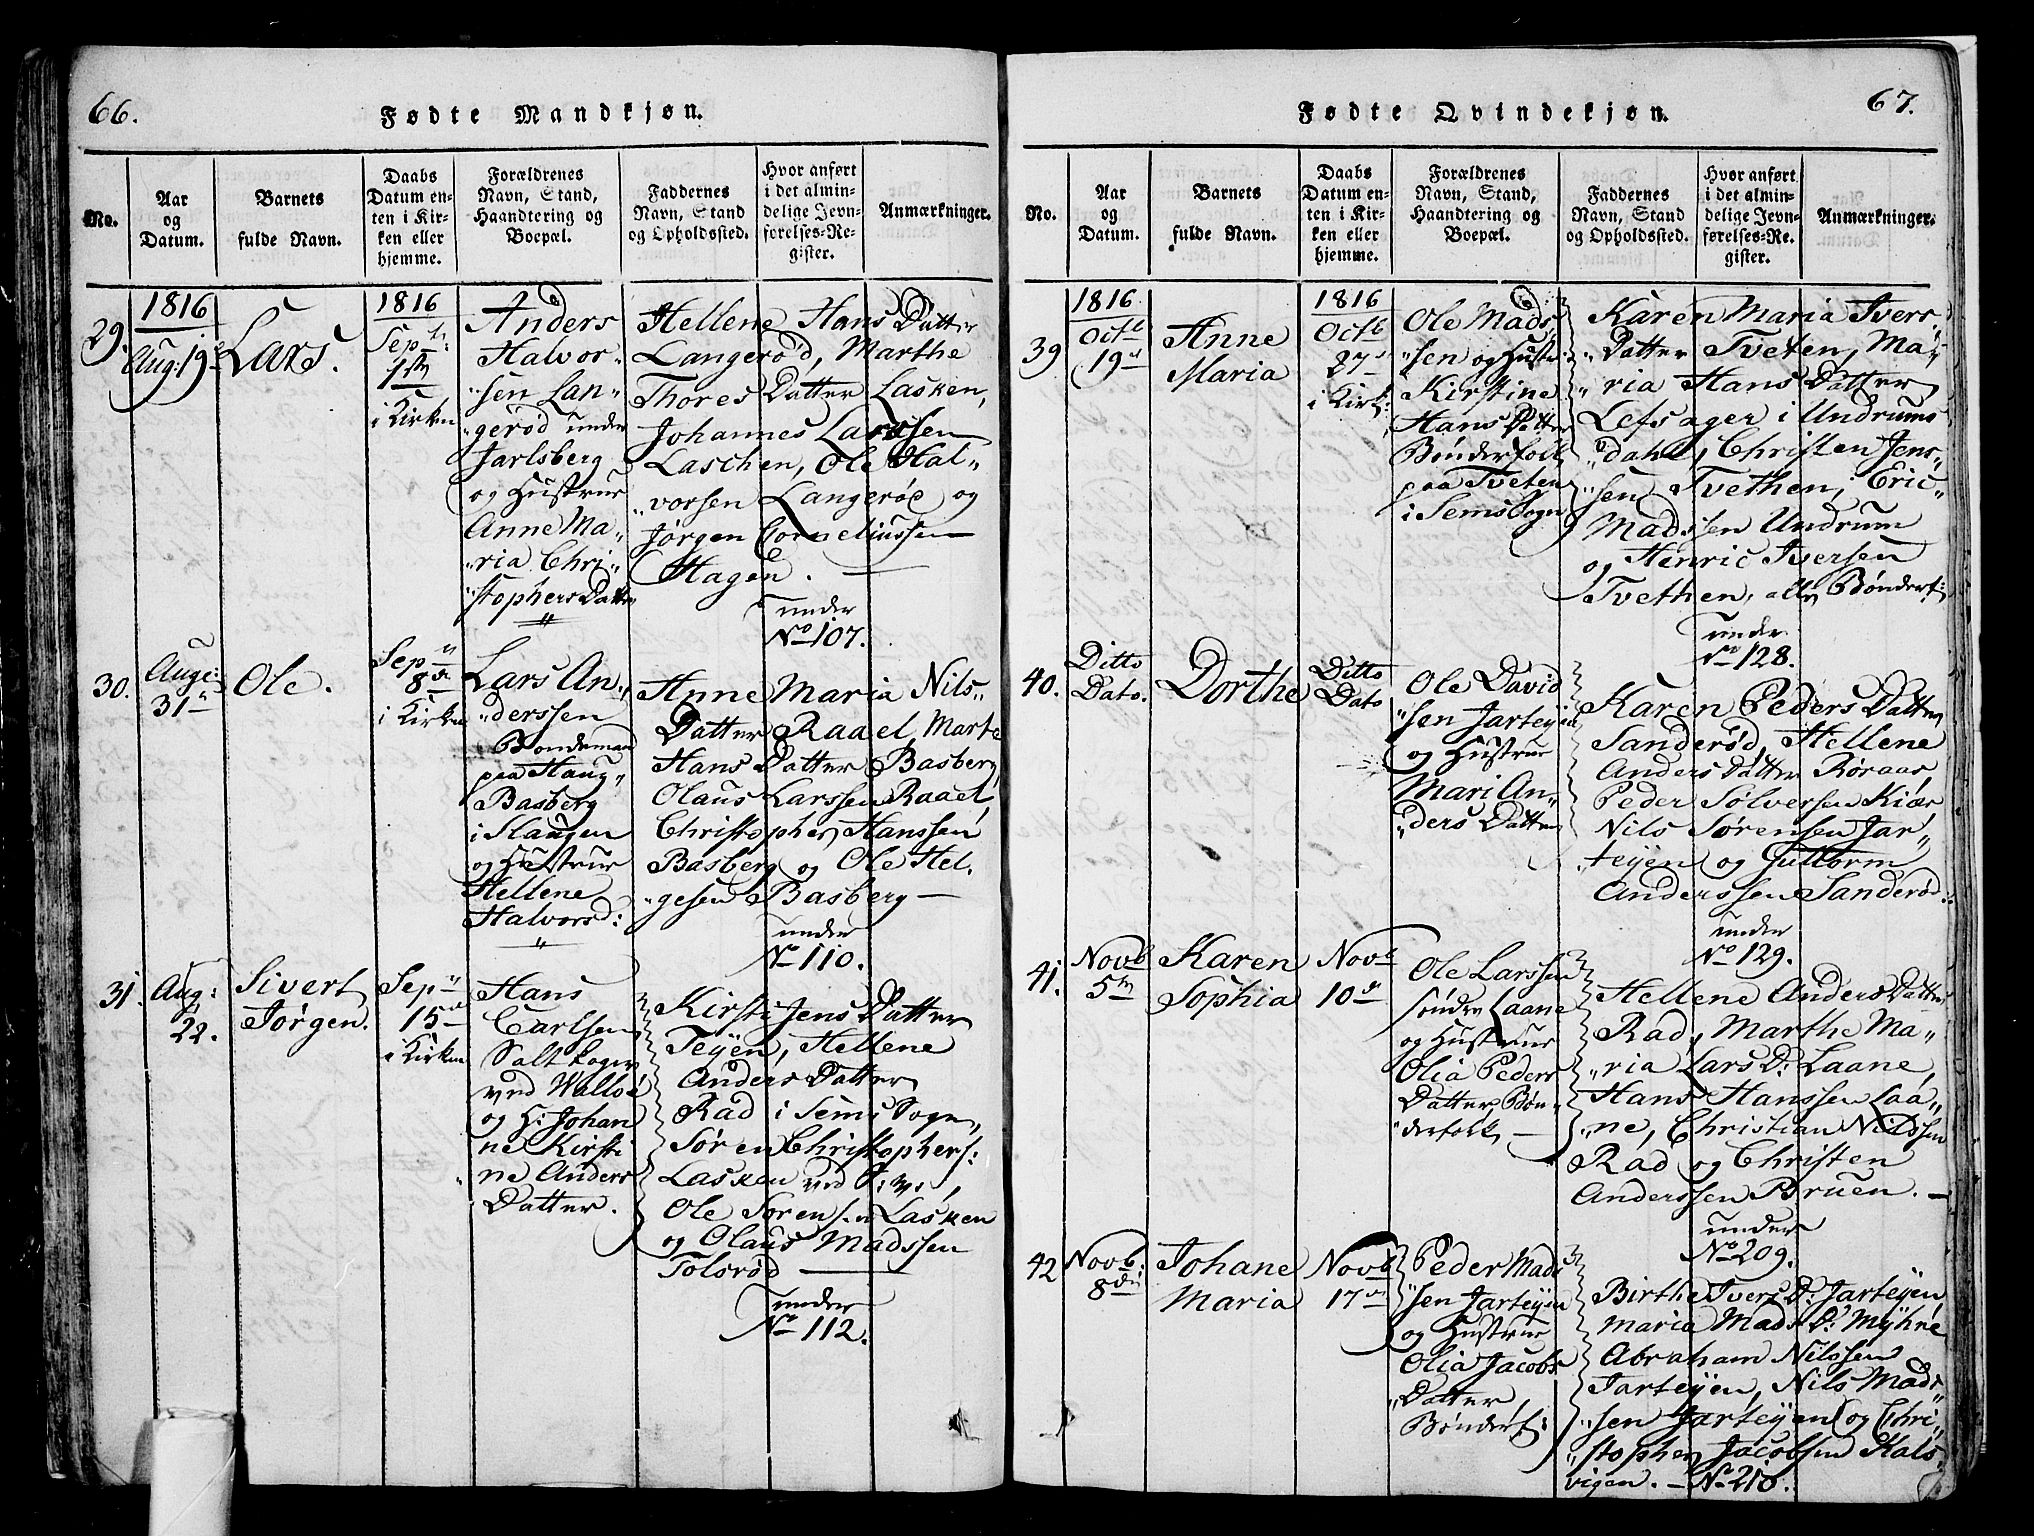 66.
Fødte Mandkjøn.
No.
Aar
og
Datum.
Barnets
fulde Navn.
Daabs
Datum en-
ten i Kir-
ken eller
hjemme.
Forældrenes
Navn, Stand,
Haandtering og
Boepæl.
Faddernes
Navn, Stand
og Opholdssted.
Hvor anført
i det almin-
delige Jevn-
førelses-Re-
gister.
Anmærkninger.
29.
1816
Aug: 19
Lars.
1816
Sept:
1ste
i Kirken
Anders
Halvor-
"sen Lan-
"gerød under
Jarlsberg
og Hustrue
Anne Ma-
"ria Chri-
"stophers Datter
Hellene Hans Datter
Langerød, Marthe
Thores Datter Lasken,
Johannes Larssen
Laschen, Ole Hal-
"vorsen Langerød og
Jørgen Corneliussen
Hagen.
under
No 107.
30.
Aug:
31
Ole.
Sep
8
i Kirken
Lars An-
"derssen
Bondemand
paa Haug-
Basberg
i Slaugen
og Hustrue
Hellene
Halvorsd:
Anne Maria Nils-
Datter Raael, Marte
Hans Datter Basberg,
Olaus Larssen Raael,
Christopher Hanssen
Basberg og Ole Hel-
"gesen Basberg
under
No 110.
31.
Aug:
22.
Sivert
Jørgen.
Sep
15
i Kirken
Hans
Carlsen
Saltkoger
ved Walløe
og H: Johan
ne Kirsti
ne Anders
Datter.
Kirsti Jens Datter
Teÿen, Hellene
Anders Datter
Rad i Sems Sogn,
Søren Christophers:
Lasken ved
Ole Sørensen Lasken
og Olaus Madssen
Tolsrød
under
No 112.
67.
Fødte Qvindekjøn.
No.
Aar
og
Datum.
Barnets
fulde Navn.
Daabs
Datum en-
ten i Kir-
ken eller
hjemme.
Forældrenes
Navn, Stand,
Haandtering og
Boepæl.
Faddernes
Navn, Stand
og Opholdssted.
Hvor anført
i det almin-
delige Jevn-
førelses-Re-
gister.
Anmærkninger.
39
1816
Octb
19
Anne
Maria
1816
Octb
27
i Kirk:
Ole Mads
"sen og Hustr:
Kirstine
Hans Datter
Bønderfolk
paa Tveten
i Sems Sogn
Karen Maria Ivers
"Datter Tveten, Ma-
"ria Hans Datter
Lefsager i Undrums
"dahl, Christen Jens-
"sen Tvethen, Eric
Madssen Undrum
og Henric Iversen
Tvethen, alle Bønderf:
under
No 128.
40.
Ditto
Dato.
Dorthe
Ditto
Dato
Ole David
"sen Jarteÿen
og Hustrue
Mari An-
"ders Datter
Karen Peders Datter
Sanderød, Hellene
Anders Datter Røraas
Peder Sølversen Kiær
Nils Sørensen Jar-
teÿen og Guttorm
Anderssen Sanderød:
under
No 129.
41.
Novb
5te
Karen
Sophia
Novb
10
Ole Larssen
søndre Laane
og Hustrue
Olia Peders
Datter, Bøn-
"derfolk
Hellene Anders Datter
Rad, Marthe Ma-
"ria Lars D: Laane,
Hans Hanssen Laa-
"ne, Christian Nilssen
Rad og Christen
Anderssen Bruen.
under
No 209.
42
Novb:
8de
Johane
Maria
Novb
17
Peder Mads
"sen Jarteÿen
og Hustrue
Olia Jacobs
"Datter,
Bønderf:
Birthe Ivers D: Jarteÿen,
Maria Mads D: Mÿhre
Abraham Nilssen
Jarteÿen, Nils Mads-
"sen Jarteÿen og Chri-
"stopher Jacobsen Kals-
vigen.
No 210.